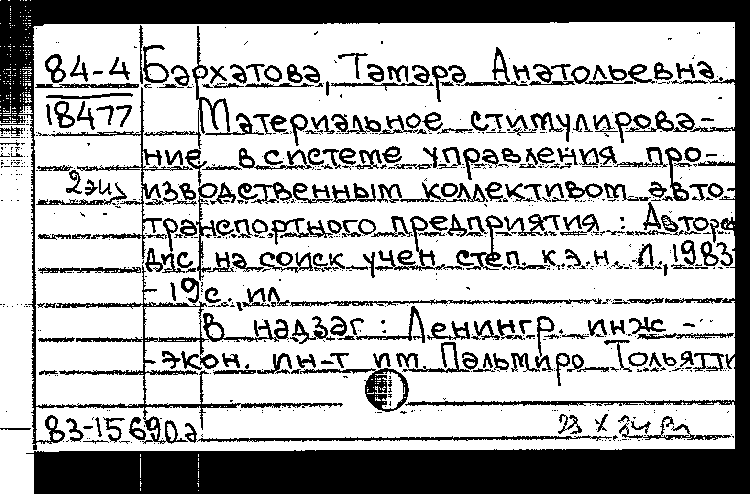 84-4 Бархатова, Тамара Анатольевна.
18477 Материальное стимулирова-
ние в системе управления про-
2 экз изводственным коллективом авто-
транспортного предприятия : Автореф
дис. на соиск учен. степ. к.э.н. Л., 1983
- 19 с., ил
В надзаг : Ленингр. инж -
-экон. ин-т им. Пальмиро Тольятти
83-15690а